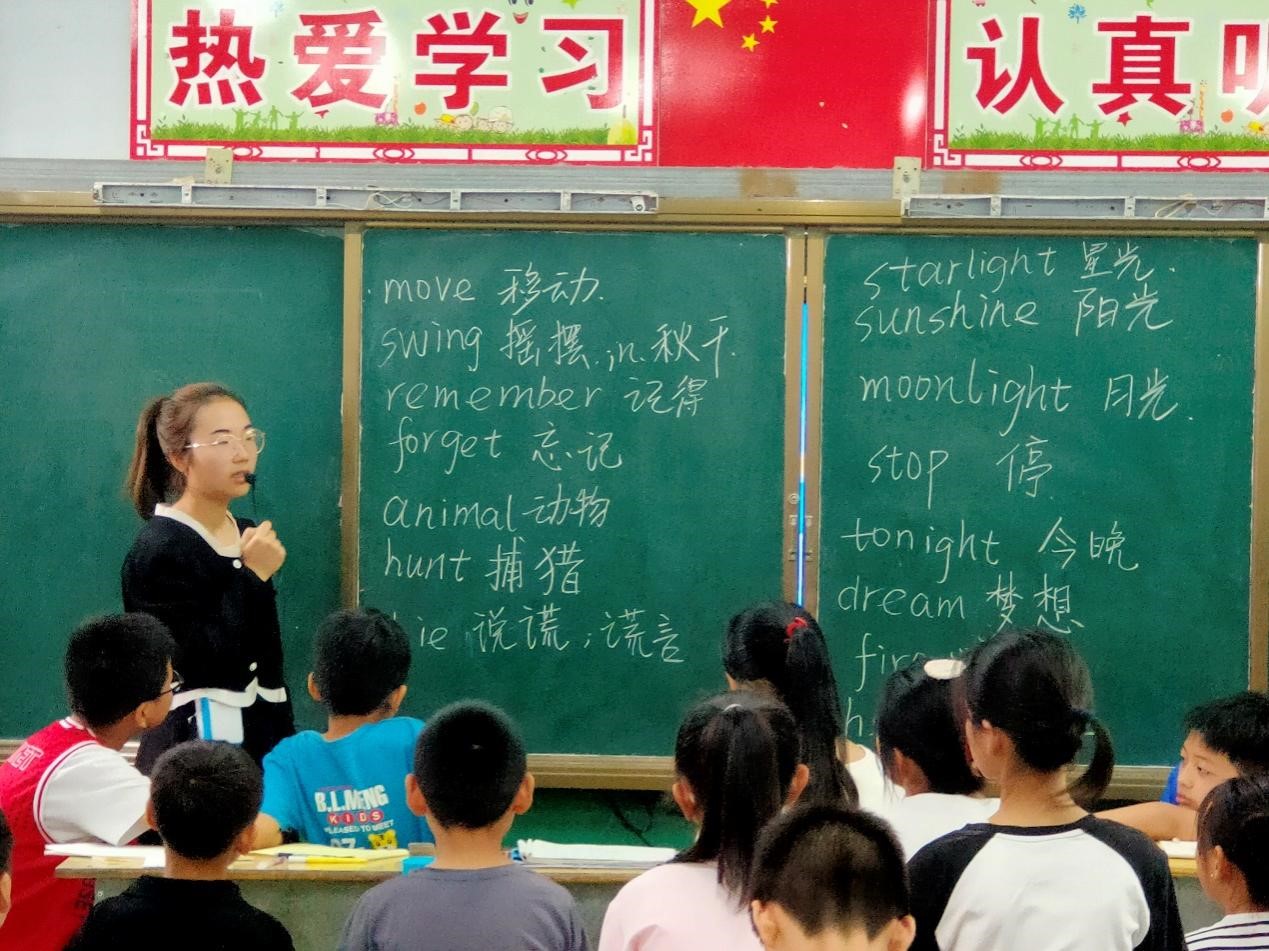 热爱学习
认真听
move 移动.
swing 摇摆.n.秋千.
remember 记得
forget 忘记
animal 动物
hunt 捕猎
lie 说谎,谎言
starlight 星光.
sunshine 阳光
moonlight 月光.
stop 停
tonight 今晚
dream 梦想
B.L.MENG
KIDS
PLEASED TO MEET